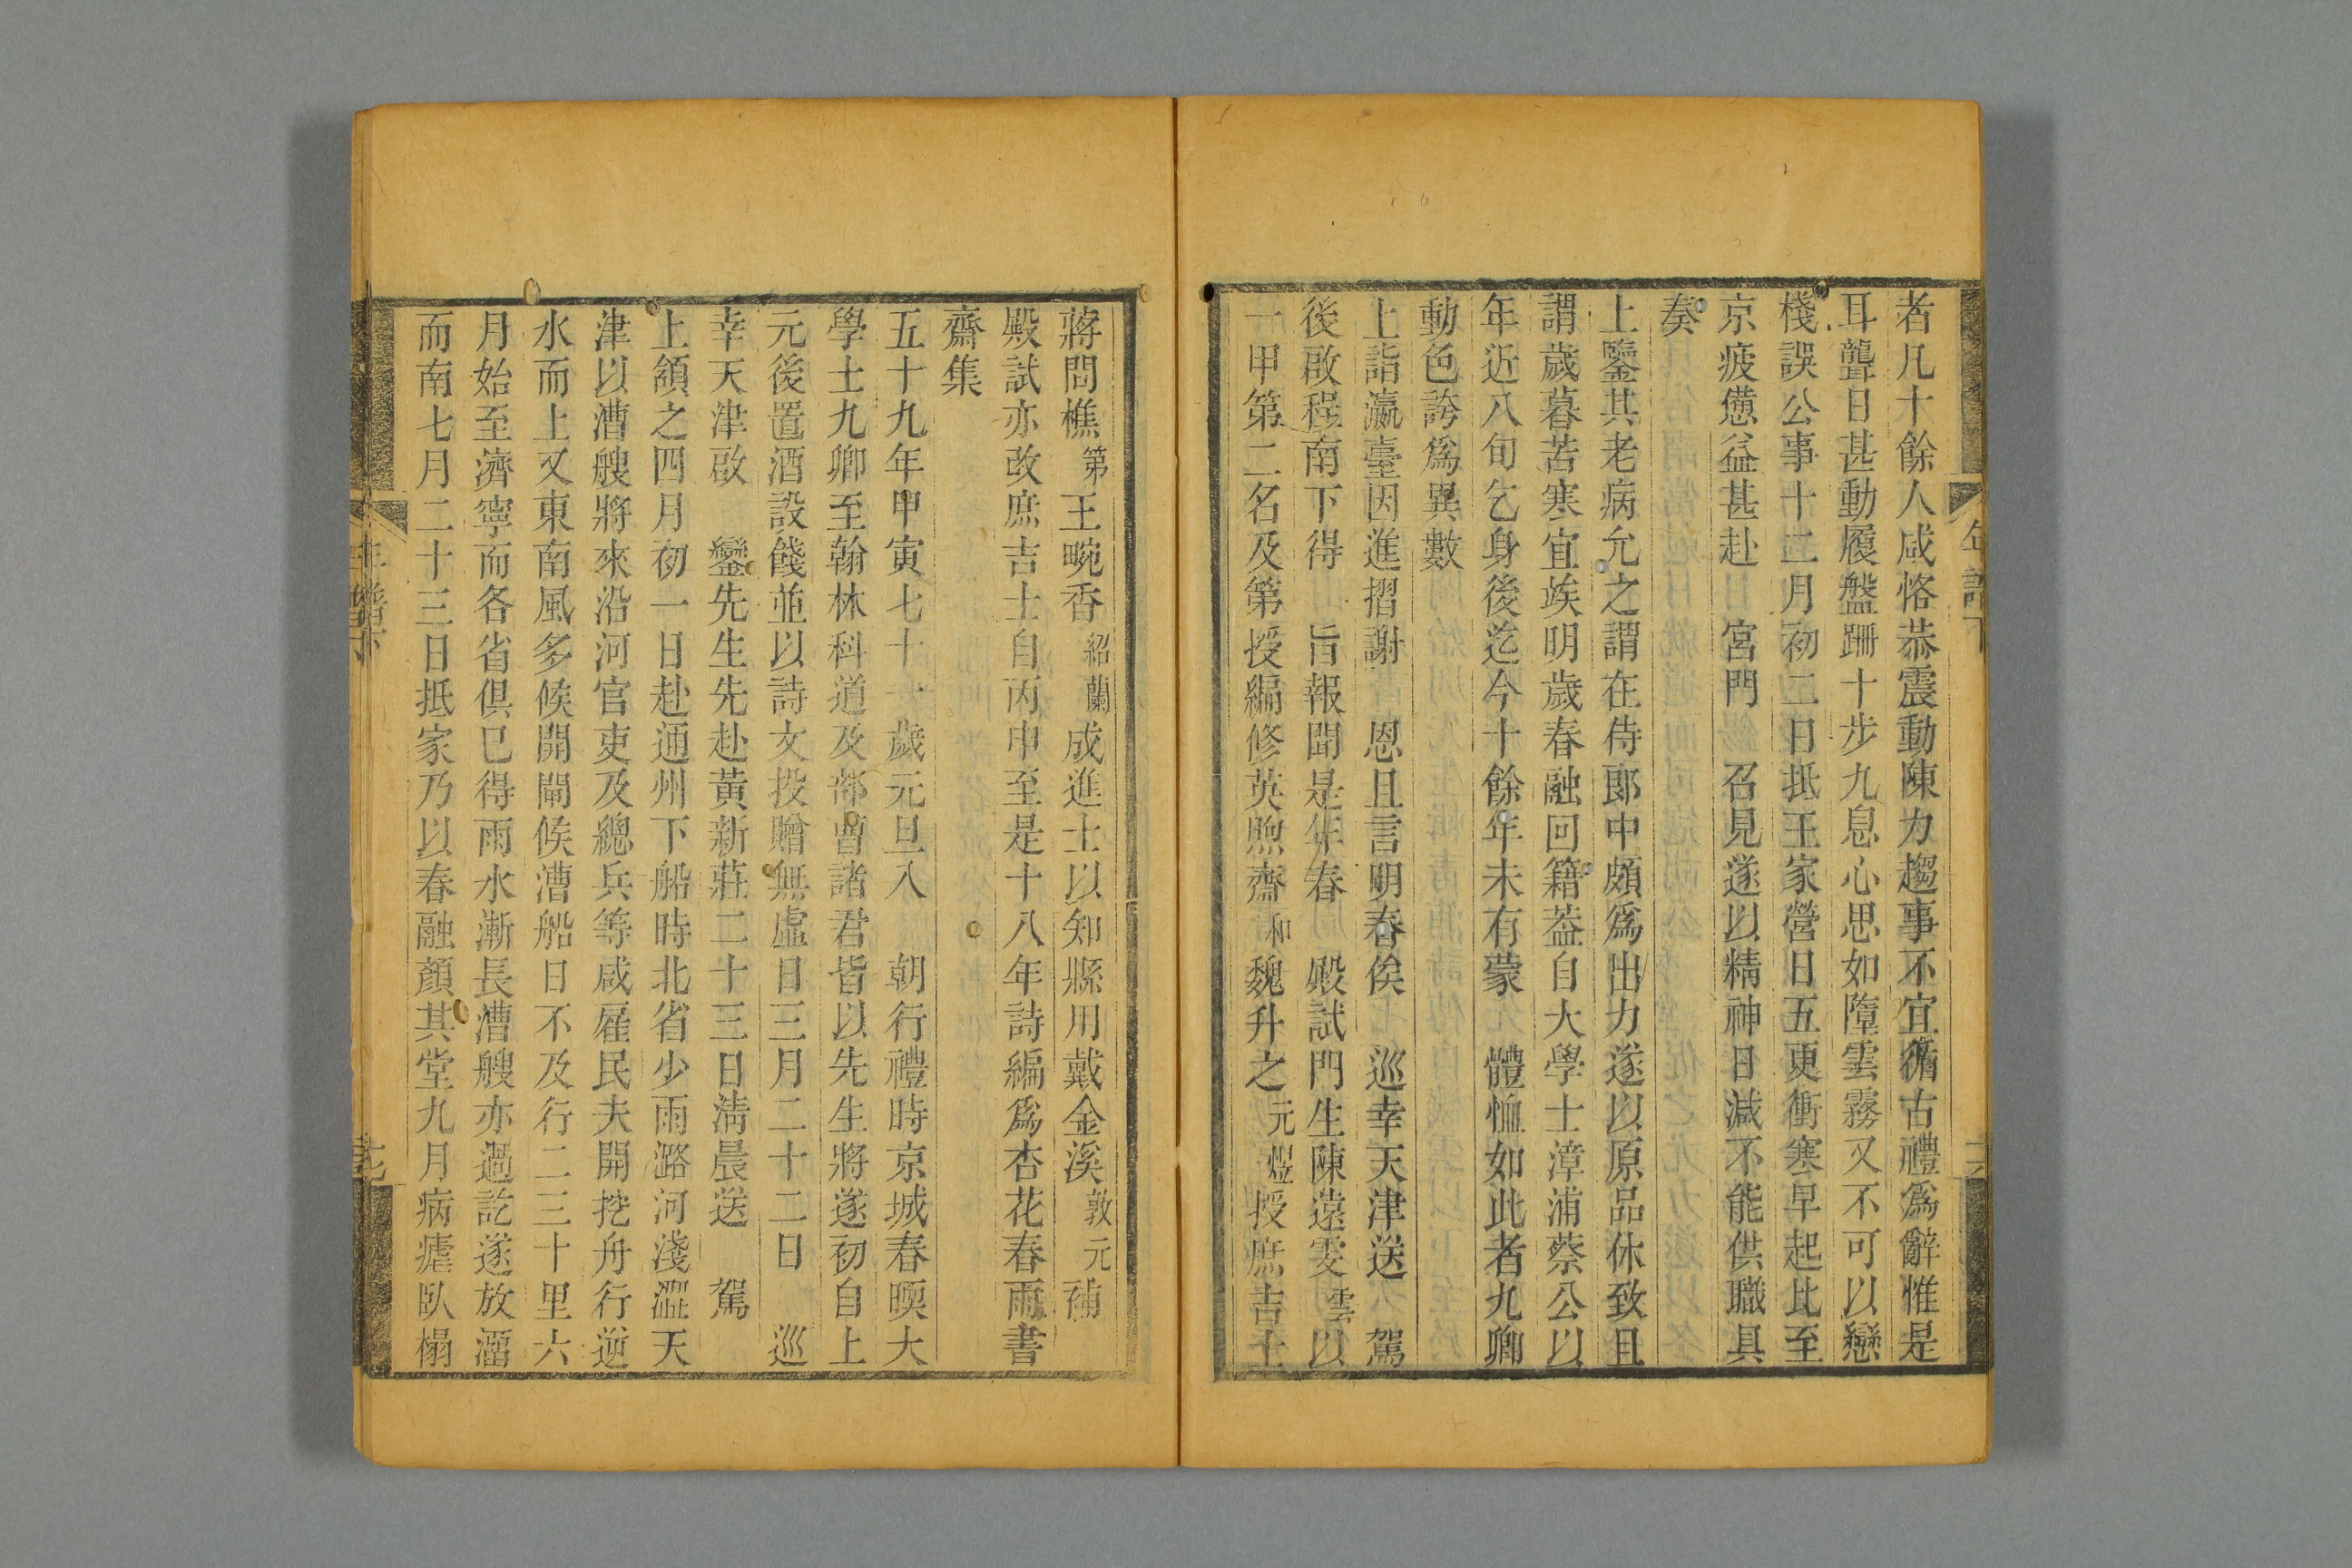 者凡十餘人咸恪恭震動陳力趨事不宜循古禮爲辭惟是
耳聾日甚動履盤跚十步九息心思如墮雲霧又不可以戀
棧誤公事十二月初二日抵王家營日五更衝寒早起比至
京疲憊益甚赴 宮門 召見遂以精神日減不能供職具
奏
上鑒其老病允之謂在侍郎中頗爲出力遂以原品休致且
謂歲暮苦寒宜竢明歲春融回籍葢自大學士漳浦蔡公以
年近八旬乞身後迄今十餘年未有蒙 體恤如此者九卿
動色誇爲異數
上詣瀛臺因進摺謝 恩且言明春俟 巡幸天津送 駕
後啟程南下得 旨報聞是年春 殿試門生陳遠雯雲以
一甲第二名及第授編修英煦齋和魏升之元煜授庶吉士
蔣問樵第王畹香紹蘭成進士以知縣用戴金溪敦元補
殿試亦改庶吉士自丙申至是十八年詩編爲杏花春雨書
齋集
五十九年甲寅七十一歲元旦入 朝行禮時京城春暎大
學士九卿至翰林科道及部曹諸君皆以先生將遂初自上
元後置酒設餞並以詩文投贈無虛日三月二十二日 巡
幸天津啟 鑾先生先赴黃新莊二十三日淸晨送 駕
上頷之四月初一日赴通州下船時北省少雨潞河淺澀天
津以漕艘將來沿河官吏及總兵等咸雇民夫開挖舟行逆
水而上又東南風多候開閘候漕船日不及行二三十里六
月始至濟寧而各省俱已得雨水漸長漕艘亦過訖遂放溜
而南七月二十三日抵家乃以春融顏其堂九月病瘧臥榻
年譜下